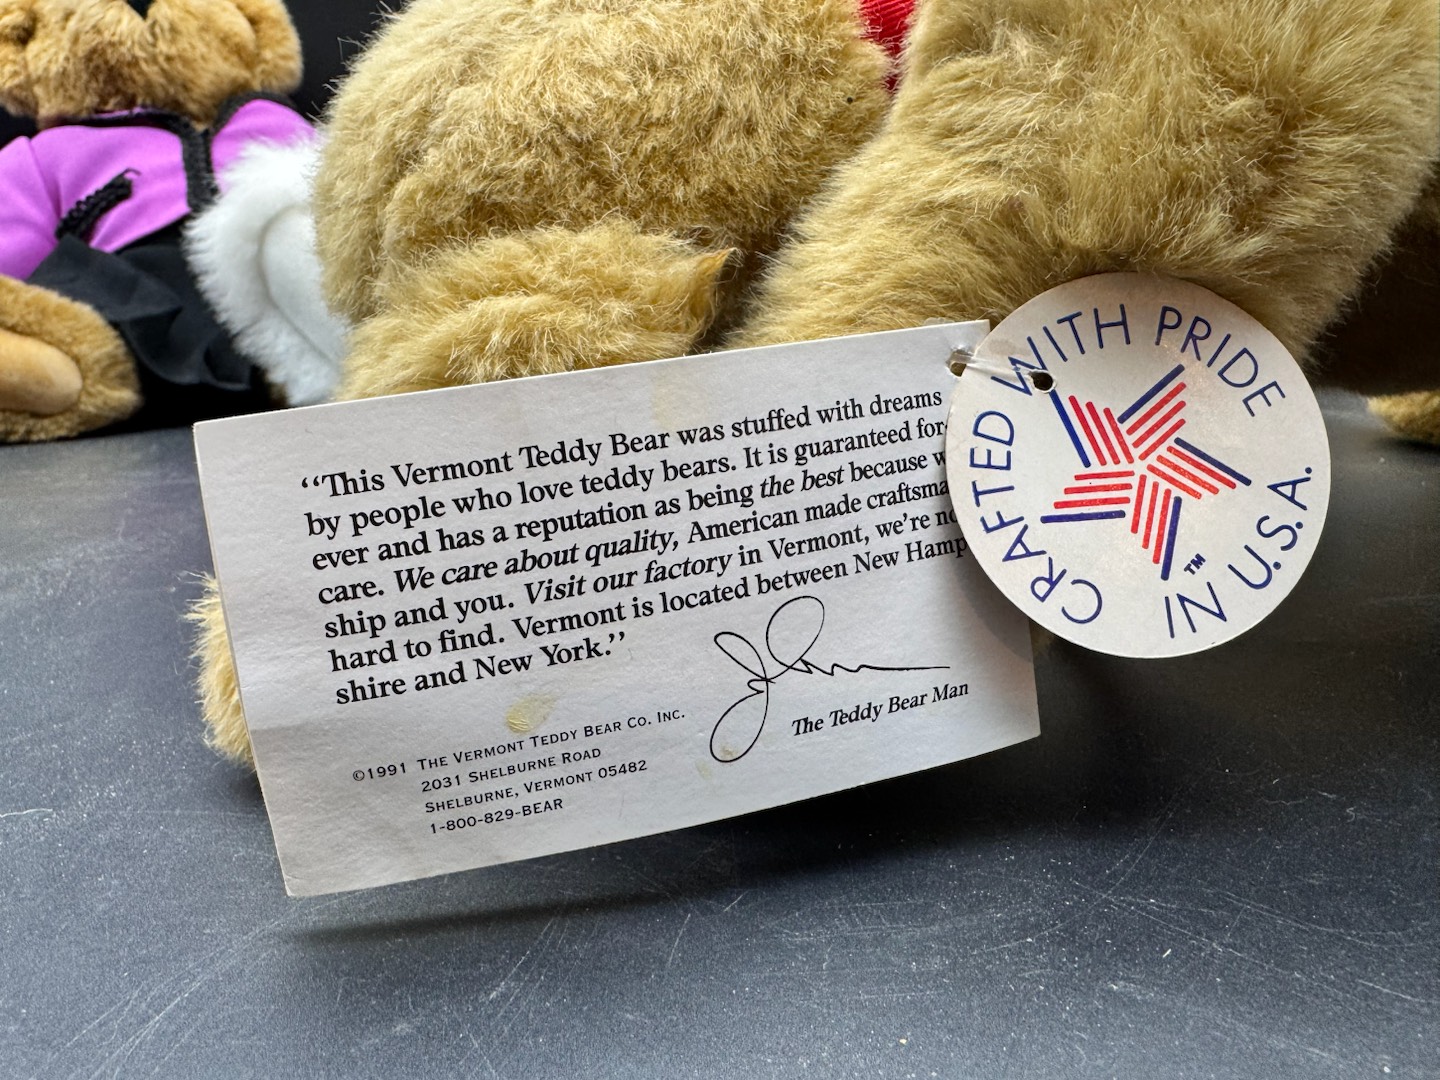 “This Vermont Teddy Bear was stuffed with dreams
by people who love teddy bears. It is guaranteed for-
ever and has a reputation as being the best because
care. We care about quality, American made craftsma
ship and you. Visit our factory in Vermont, we’re
hard to find. Vermont is located between New Hamp
shire and New York.”
The Teddy Bear Man
©1991 THE VERMONT TEDDY BEAR CO. INC.
2031 SHELBURNE ROAD
SHELBURNE, VERMONT 05482
1-800-829-BEAR
CRAFTED WITH PRIDE
IN U.S.A.
TM